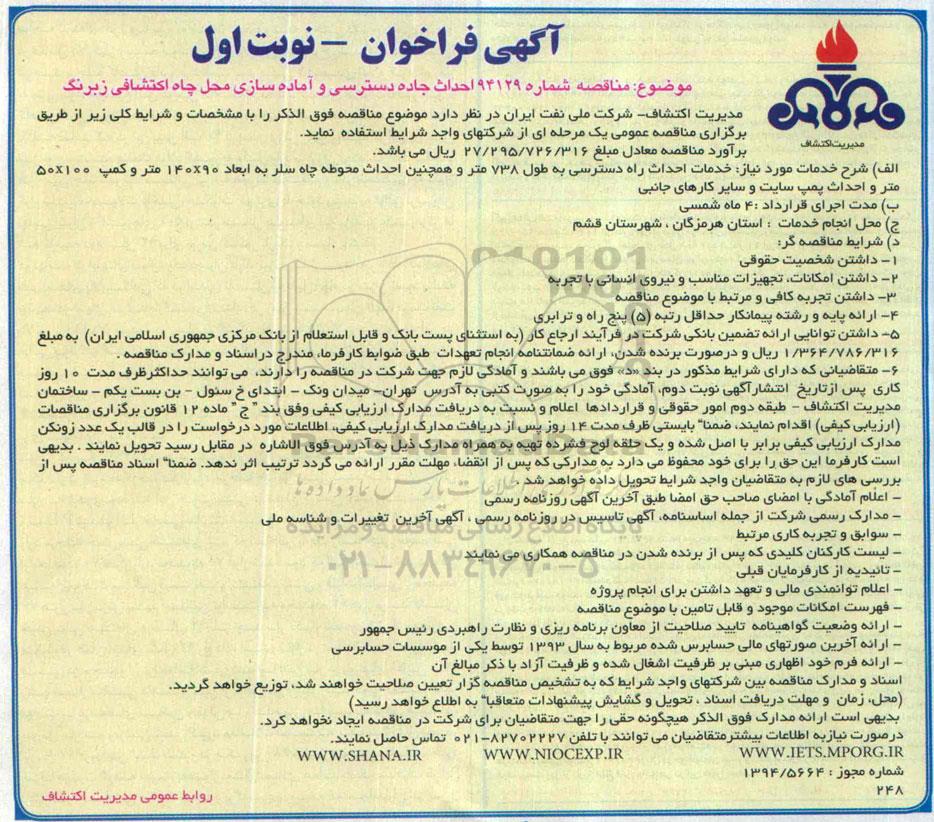 آگهی فراخوان - نوبت اول
موضوع: مناقصه شماره ۹۴۱۲۹ احداث جاده دسترسی و آماده سازی محل چاه اکتشافی زبرنگ
مدیریت اکتشاف
مدیریت اکتشاف- شرکت ملی نفت ایران در نظر دارد موضوع مناقصه فوق الذکر را با مشخصات و شرایط کلی زیر از طریق
برگزاری مناقصه عمومی یک مرحله ای از شرکتهای واجد شرایط استفاده نماید.
برآورد مناقصه معادل مبلغ ۲۷/۲۹۵/۷۲۶/۳۱۶ ریال می باشد.
الف) شرح خدمات مورد نیاز: خدمات احداث راه دسترسی به طول ۷۳۸ متر و همچنین احداث محوطه چاه سلر به ابعاد ۱۴۰x۹۰ متر و کمپ ۵۰x۱۰۰
متر و احداث پمپ سایت و سایر کارهای جانبی
ب) مدت اجرای قرارداد :۴ ماه شمسی
ج) محل انجام خدمات : استان هرمزگان ، شهرستان قشم
د) شرایط مناقصه گر:
۱- داشتن شخصیت حقوقی
۲- داشتن امکانات، تجهیزات مناسب و نیروی انسانی با تجربه
۳- داشتن تجربه کافی و مرتبط با موضوع مناقصه
۴- ارائه پایه و رشته پیمانکار حداقل رتبه (۵) پنج راه و ترابری
۵- داشتن توانایی ارائه تضمین بانکی شرکت در فرآیند ارجاع کار (به استثنای پست بانک و قابل استعلام از بانک مرکزی جمهوری اسلامی ایران) به مبلغ
۱/۳۶۴/۷۸۶/۳۱۶ ریال و درصورت برنده شدن، ارائه ضمانتنامه انجام تعهدات طبق ضوابط کارفرما، مندرج دراسناد و مدارک مناقصه .
۶- متقاضیانی که دارای شرایط مذکور در بند «د» فوق می باشند و آمادگی لازم جهت شرکت در مناقصه را دارند، می توانند حداکثرظرف مدت ۱۰ روز
کاری پس ازتاریخ انتشارآگهی نوبت دوم، آمادگی خود را به صورت کتبی به آدرس تهران- میدان ونک - ابتدای خ سئول - بن بست یکم - ساختمان
مدیریت اکتشاف - طبقه دوم امور حقوقی و قراردادها اعلام و نسبت به دریافت مدارک ارزیابی کیفی وفق بند " ج " ماده ۱۲ قانون برگزاری مناقصات
(ارزیابی کیفی) اقدام نمایند، ضمنا" بایستی ظرف مدت ۱۴ روز پس از دریافت مدارک ارزیابی کیفی، اطلاعات مورد درخواست را در قالب یک عدد زونکن
مدارک ارزیابی کیفی برابر با اصل شده و یک حلقه لوح فشرده تهیه به همراه مدارک ذیل به آدرس فوق الاشاره در مقابل رسید تحویل نمایند . بدیهی
است کارفرما این حق را برای خود محفوظ می دارد به مدارکی که پس از انقضاء مهلت مقرر ارائه می گردد ترتیب اثر ندهد. ضمنا" اسناد مناقصه پس از
بررسی های لازم به متقاضیان واجد شرایط تحویل داده خواهد شد .
- اعلام آمادگی با امضای صاحب حق امضا طبق آخرین آگهی روزنامه رسمی
- مدارک رسمی شرکت از جمله اساسنامه، آگهی تاسیس در روزنامه رسمی ، آگهی آخرین تغییرات و شناسه ملی
- سوابق و تجربه کاری مرتبط
- لیست کارکنان کلیدی که پس از برنده شدن در مناقصه همکاری می نمایند
- تائیدیه از کارفرمایان قبلی
- اعلام توانمندی مالی و تعهد داشتن برای انجام پروژه
- فهرست امکانات موجود و قابل تامین با موضوع مناقصه
- ارائه وضعیت گواهینامه تایید صلاحیت از معاون برنامه ریزی و نظارت راهبردی رئیس جمهور
- ارائه آخرین صورتهای مالی حسابرس شده مربوط به سال ۱۳۹۳ توسط یکی از موسسات حسابرسی
- ارائه فرم خود اظهاری مبنی بر ظرفیت اشغال شده و ظرفیت آزاد با ذکر مبالغ آن
اسناد و مدارک مناقصه بین شرکتهای واجد شرایط که به تشخیص مناقصه گزار تعیین صلاحیت خواهند شد، توزیع خواهد گردید.
(محل، زمان و مهلت دریافت اسناد ، تحویل و گشایش پیشنهادات متعاقبا" به اطلاع خواهد رسید)
بدیهی است ارائه مدارک فوق الذکر هیچگونه حقی را جهت متقاضیان برای شرکت در مناقصه ایجاد نخواهد کرد.
درصورت نیاز به اطلاعات بیشتر متقاضیان می توانند با تلفن ۸۲۷۰۲۲۲۷-۰۲۱ تماس حاصل نمایند.
WWW.IETS.MPORG.IR WWW.NIOCEXP.IR WWW.SHANA.IR
شماره مجوز : ۱۳۹۴/۵۶۶۴
۲۴۸
روابط عمومی مدیریت اکتشاف
پایگاه اطلاع رسانی مناقصه و مزایده
۰۲۱-۸۸۳۴۹۶۷۰-۵